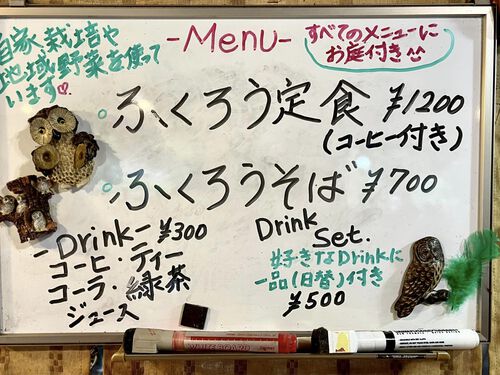 自家栽培や
地域野菜を使って
います♡
-Menu-
すべてのメニューに
お庭付き
ふくろう定食 ¥1200
(コーヒー付き)
ふくろうそば ¥700
-Drink- ¥300
コーヒ・ティー
コーラ・緑茶
ジュース
Drink
Set.
好きなDrinkに
一品(日替)付き
¥500